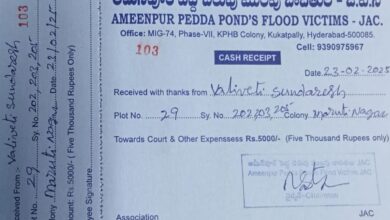 AMEENPUR PEDDA POND'S FLOOD VICTIMS - JAC.
Office: MIG-74, Phase-VII, KPHB Colony, Kukatpally, Hyderabad-500085.
103
Cell: 9390975967
CASH RECEIPT
Date. 23-02-2025
Received with thanks from Valiveti Sundaresh
Plot No. 29 Sy. No. 202,203,205 Colony Maruti Nagar
Towards Court & Other Expensess Rs.5000/- (Five Thousand Rupees only)
Ameenpur Pedda
Association JAC
103
Received From :- Valiveti Sundaresh
29 Sy. No. 202, 203, 205
Maruti Nagar 23/02/25
Amount Rs.5000/- (Five Thousand Rupees Only)
Payee Signature.